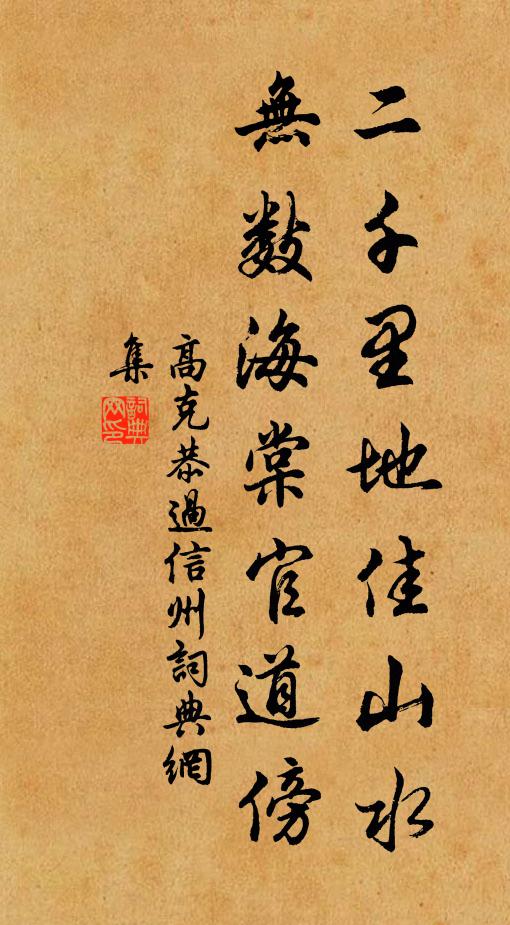 二千里地佳山水
無數海棠官道傍
高克恭過信州詞典網
集
詞典
網印